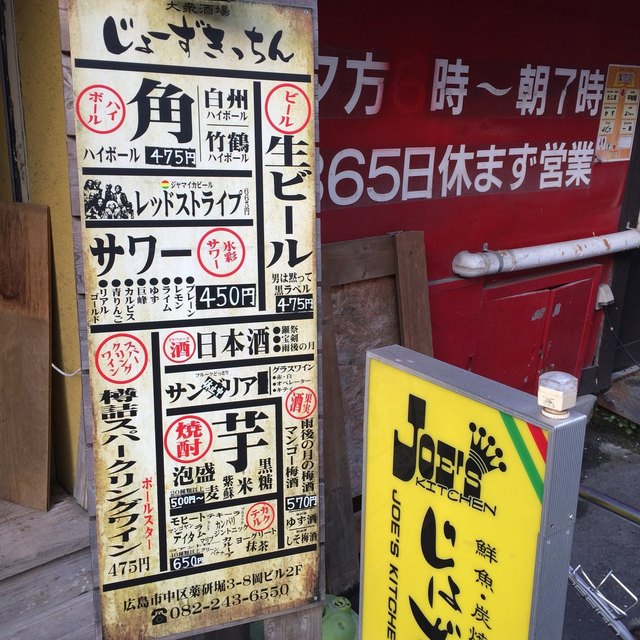 大衆酒場
じょーずきっちん
ハイボール
角
ハイボール 475円
白州
ハイボール
竹鶴
ハイボール
ビール
生ビール
男は黙って
黒ラベル
475円
ジャマイカビール
レッドストライプ
サワー
氷彩サワー
450円
プレーン
レモン
ライム
ゆず
巨峰
カルピス
青りんご
リアルゴールド
スパークリングワイン
樽詰スパークリングワイン
ポールスター
475円
酒
日本酒
獺祭
宝剣
雨後の月
フルーツどっさり
サングリア
グラスワイン
赤・白
オペレーター
キティ
果実酒
雨後の月の梅酒
マンゴー梅酒
570円
ゆず酒
しそ梅酒
焼酎
芋
泡盛
麦
紫蘇
米
黒糖
500円〜
カクテル
モヒート
テキーラ
カンパリ
ジントニック
ヨーグリート
抹茶
650円
広島市中区薬研堀3-8岡ビル2F
☎082-243-6550
夕方 時〜朝7時
365日休まず営業
JOE'S
KITCHEN
JOE'S KITCHE
じょず
鮮魚・炭焼